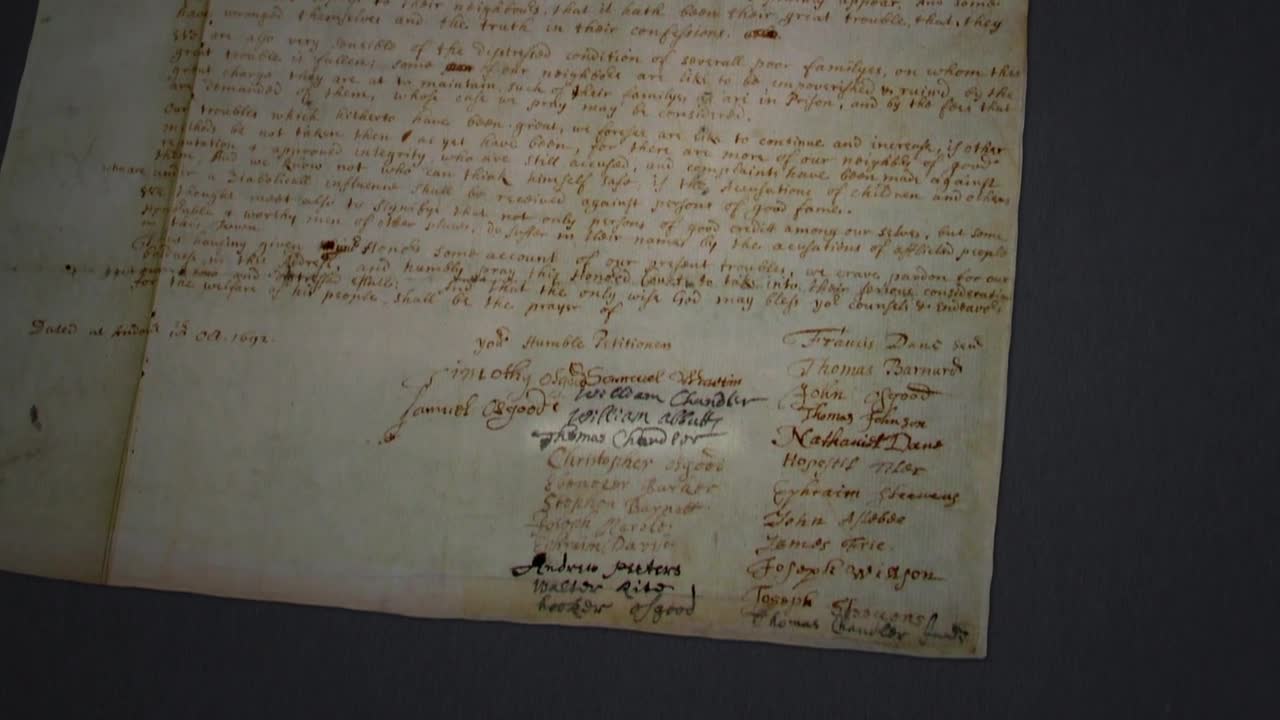 to their neighbours, that it hath been their great trouble, that they
have wronged themselves and the truth in their confessions.
We are also very sensible of the distressed condition of severall poor familyes, on whom this
great trouble is fallen; some of our neighbors are like to be impoverished & ruin'd by the
great charge they are at to maintain such of their familyes as are in Prison, and by the fees that
are demanded of them, whose case we pray may be considered.
Our troubles which hitherto have been great, we foresee are like to continue and increase, if other
methods be not taken then as yet have been, for there are more of our neighbrs of good
reputation & approved integrity, who are still accused, and complaints have been made against
them, And we know not who can think himself safe, if the Accusations of children and others
who are under a Diabolicall influence shall be received against persons of good fame.
We thought meet also to signifye that not only persons of good credit among our selves, but some
Honorable & worthy men of other places, do suffer in their names by the acusations of afflicted people
in this Town.
Thus haveing given Honors some account of our present troubles, we crave pardon for our
boldness in this Address, and humbly pray this Honored Court to take into their serious consideration
our low and distressed estate: And that the only wise God may bless yor counsels & Endeavors
for the welfare of his people, shall be the prayer of
Dated at Andovr 18 Oct. 1692.
yor Humble Petitioners
Francis Dane senr
Thomas Barnard
John Osgood
Thomas Johnson
Nathaniel Dane
Hopestil Tiler
Ephraim Steevens
John Aslebee
James Frie
Joseph Wilson
Joseph Steevens
Thomas Chandler
Timothy Osgood
Samuel Martin
Samuel Osgood
William Chandler
William Abbutt
Thomas Chandler
Christopher Osgood
Ebenezer Barker
Stephen Barnett
Joseph Marble
Ephraim Davis
Andrew Peeters
Walter Rite
hooker Osgood